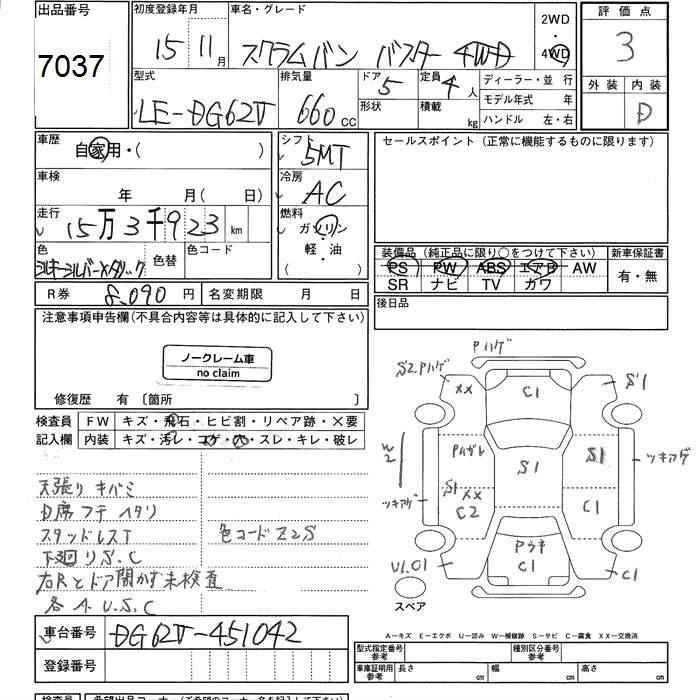 出品番号
7037
初度登録年月
15 11月
車名・グレード
スクラムバン バスター 4WD
2WD
・
4WD
評価点
3
外装 内装
D
型式
LE-DG62V
排気量
660 cc
ドア
5
形状
定員
4 人
積載
kg
ディーラー・並 行
モデル年式 年
ハンドル 左・右
車歴
自家用・( )
シフト
5MT
セールスポイント (正常に機能するものに限ります)
車検
年 月( 日)
冷房
AC
走行
15万3千923 km
燃料
ガソリン
軽・油
( )
色
シルキーシルバーメタリック
色替
色コード
装備品 (純正品に限り○をつけて下さい)
新車保証書
PS PW ABS エアB AW
SR ナビ TV カワ
有・無
R券 8,090 円
名変期限 月 日
後日品
注意事項申告欄(不具合内容等は具体的に記入して下さい)
ノークレーム車
no claim
修復歴 有〔箇所 〕
検査員
記入欄
FW キズ・飛石・ヒビ割・リペア跡・×要
内装 キズ・汚レ・コゲ・穴・スレ・キレ・破レ
天張り キバミ
D席 フチ ヘタリ
スタッドレスT
色コード Z2S
下廻り S.C
右Rとドア開かず未検査
各 A.U.S.C
Pハゲ
S2 Pハゲ
XX
C1
S1
W2
Pハガレ
S1
S1
ツキアゲ
ツキアゲ
S1 XX
C2
C1
Pウキ
C1
U1.C1
C1
スペア
A－キズ E－エクボ U－凹み W－補修跡 S－サビ C－腐食 XX－交換済
車台番号
DG62V-451042
登録番号
型式指定番号
参考
種別区分番号
参考
車庫証明用
参考
長さ cm
幅 cm
高さ cm
検査員
希望出品コーナー(ご希望のコーナー名を記入下さい)